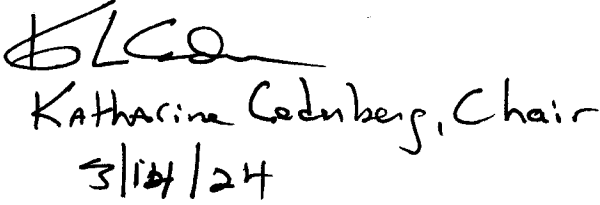 Katharine Cedarberg, Chair
3/14/24